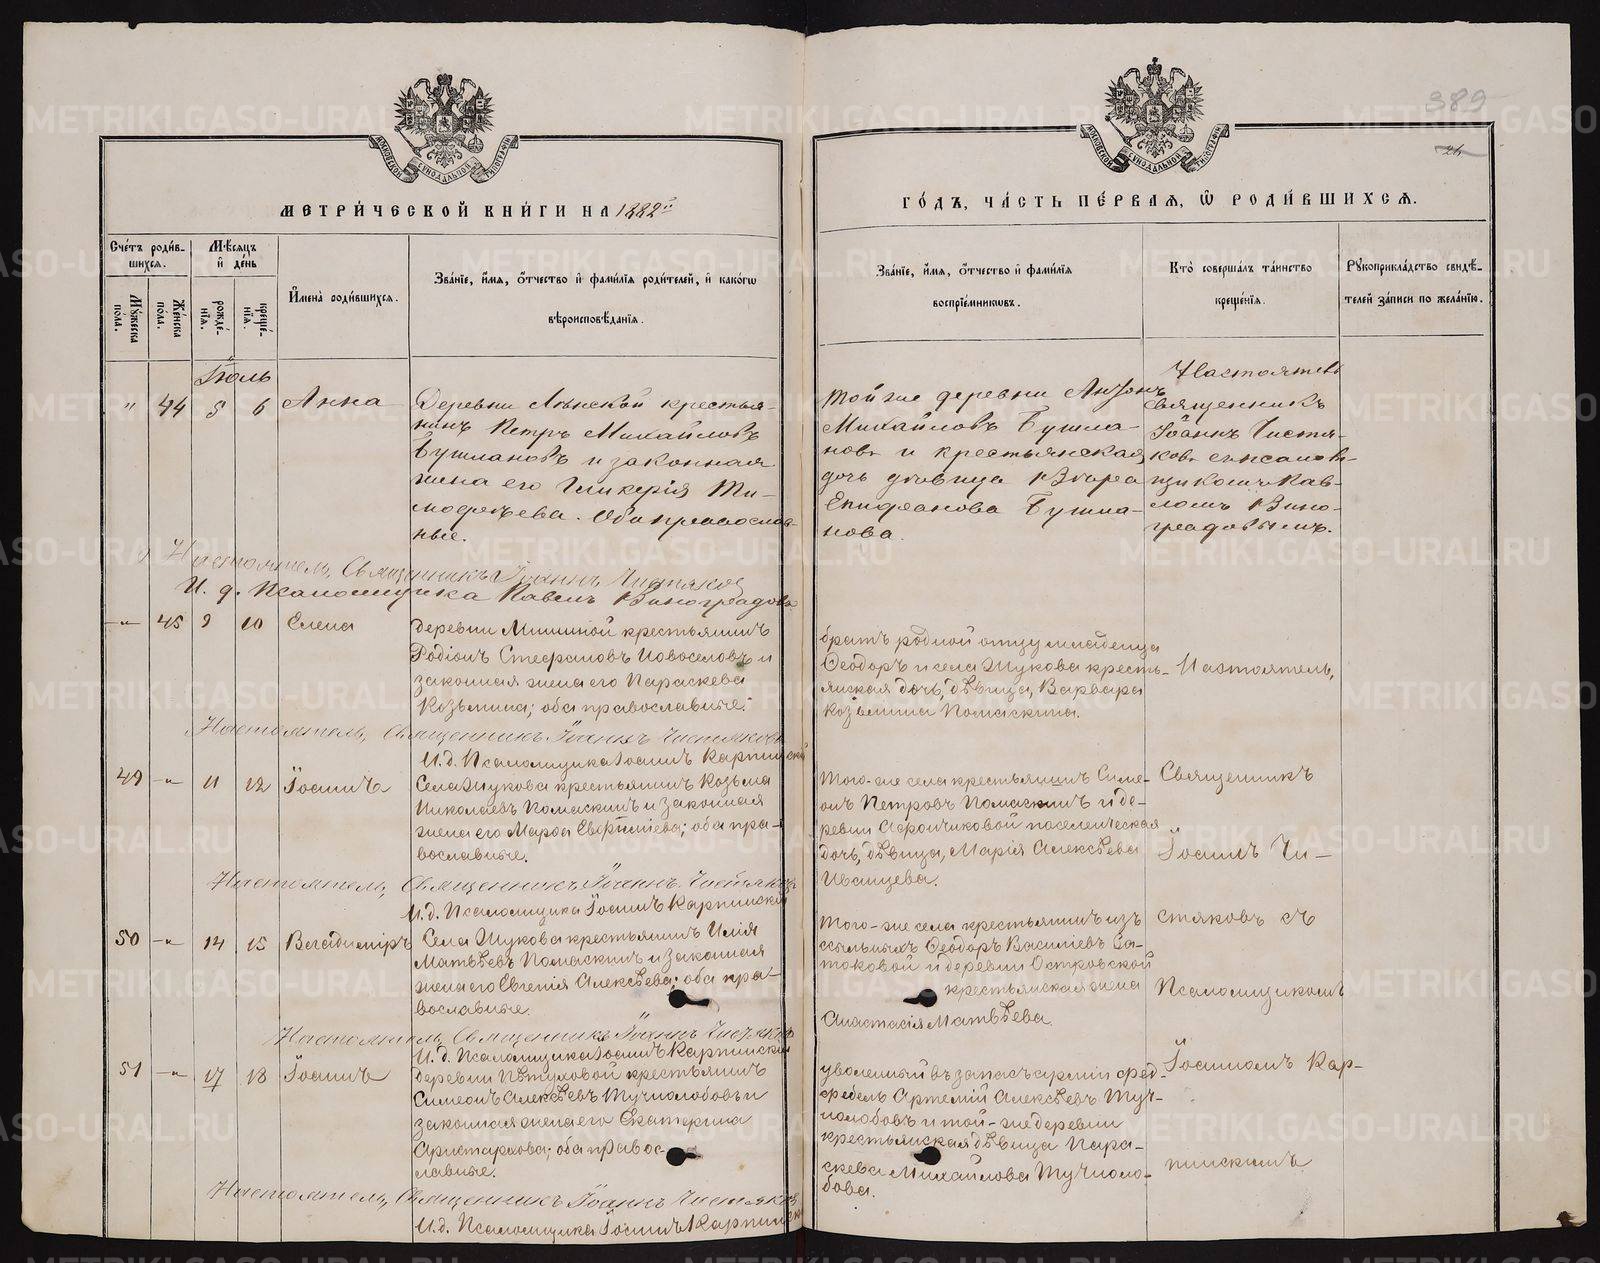 389
МОСКОВСКОЙ СѴНОДАЛЬНОЙ ТИПОГРАФІИ
МОСКОВСКОЙ СѴНОДАЛЬНОЙ ТИПОГРАФІИ
МЕТРИ́ЧЕСКОЙ КНИ́ГИ НА 1882й
ГО́ДЪ, ЧА́СТЬ ПЕ́РВАЯ, Ѡ҆ РОДИ́ВШИХСѦ.
Сче́тъ роди́в-
шихсѧ.
Мꙋ́жеска пола.
Же́нска пола.
Мѣ́сѧцъ
и҆ де́нь
рожде́-
нїѧ.
креще́-
нїѧ.
И҆мена̀ роди́вшихсѧ.
Зва́нїе, и҆́мѧ, ѻ҆́тчество и҆ фами́лїѧ роди́телей, и҆ како́гѡ
вѣроисповѣ́данїѧ.
Зва́нїе, и҆́мѧ, ѻ҆́тчество и҆ фами́лїѧ
воспрїе́мниковъ.
Кто̀ соверша́лъ та́инство
креще́нїѧ.
Рꙋкоприкла́дство свидѣ́-
телей за́писи по жела́нїю.
Іюль
" 44 5 6 Анна
крестья-
нинъ Петръ Михайловъ
Бушлановъ и законная
жена его Гликерія Ти-
мофеева. Оба православ-
ные.
той же деревни Антонъ
Михайловъ Бушла-
новъ и крестьянская
дочь девица
Епифанова
нова.
Настоятель
Священникъ
Іоаннъ Чистя-
ковъ съ псаломъ-
щикомъ Пав-
ломъ Вино-
градовымъ.
Настоятель, Священникъ Іоаннъ Чистяковъ
И. д. Псаломщика Павелъ Виноградовъ
-"- 45 9 10 Елена
деревни Мишиной крестьянинъ
Родіонъ Стефановъ Новоселовъ и
законная жена его Параскева
Козьмина; оба православные.
братъ родной отцу младенца
Ѳеодоръ и села Жукова кресть-
янская дочь, дѣвица, Варвара
Козьмина Помаскина.
Настоятель,
Настоятель, Священникъ Іоаннъ Чистяковъ
И. д. Псаломщика Іоаннъ Карпинскій
49 -"- 11 12 Іоаннъ
Села Жукова крестьянинъ Козьма
Николаевъ Помаскинъ и законная
жена его Марѳа Евфиміева; оба пра-
вославные.
Того-же села крестьянинъ Симе-
онъ Петровъ Помаскинъ и де-
ревни Афончиковой поселенческая
дочь, дѣвица, Марія Алексѣева
Иванцева.
Священникъ
Іоаннъ Чи-
Настоятель, Священникъ Іоаннъ Чистяковъ
И. д. Псаломщика Іоаннъ Карпинскій
50 -"- 14 15 Владиміръ
Села Жукова крестьянинъ Илія
Матвѣевъ Помаскинъ и законная
жена его Евгенія Алексѣева; оба пра-
вославные.
Того-же села крестьянинъ изъ
ссыльныхъ Ѳеодоръ Василіевъ
и деревни Островской
крестьянская жена
Анастасія Матвѣева.
стяковъ съ
Псаломщикомъ
Настоятель, Священникъ Іоаннъ Чистяковъ
И. д. Псаломщика Іоаннъ Карпинскій
51 -"- 17 18 Іоаннъ
деревни Пѣтуховой крестьянинъ
Симеонъ Алексѣевъ Тучнолобовъ и
законная жена его Екатерина
Аристархова; оба правос-
лавные.
уволенный въ запасъ арміи фельд-
фебель Артемій Алексѣевъ Туч-
нолобовъ и той-же деревни
крестьянская дѣвица Пара-
скева Михайлова Тучноло-
бова.
Іоанномъ Кар-
пинскимъ
Настоятель, Священникъ Іоаннъ Чистяковъ
И. д. Псаломщика Іоаннъ Карпинскій
METRIKI.GASO-URAL.RU